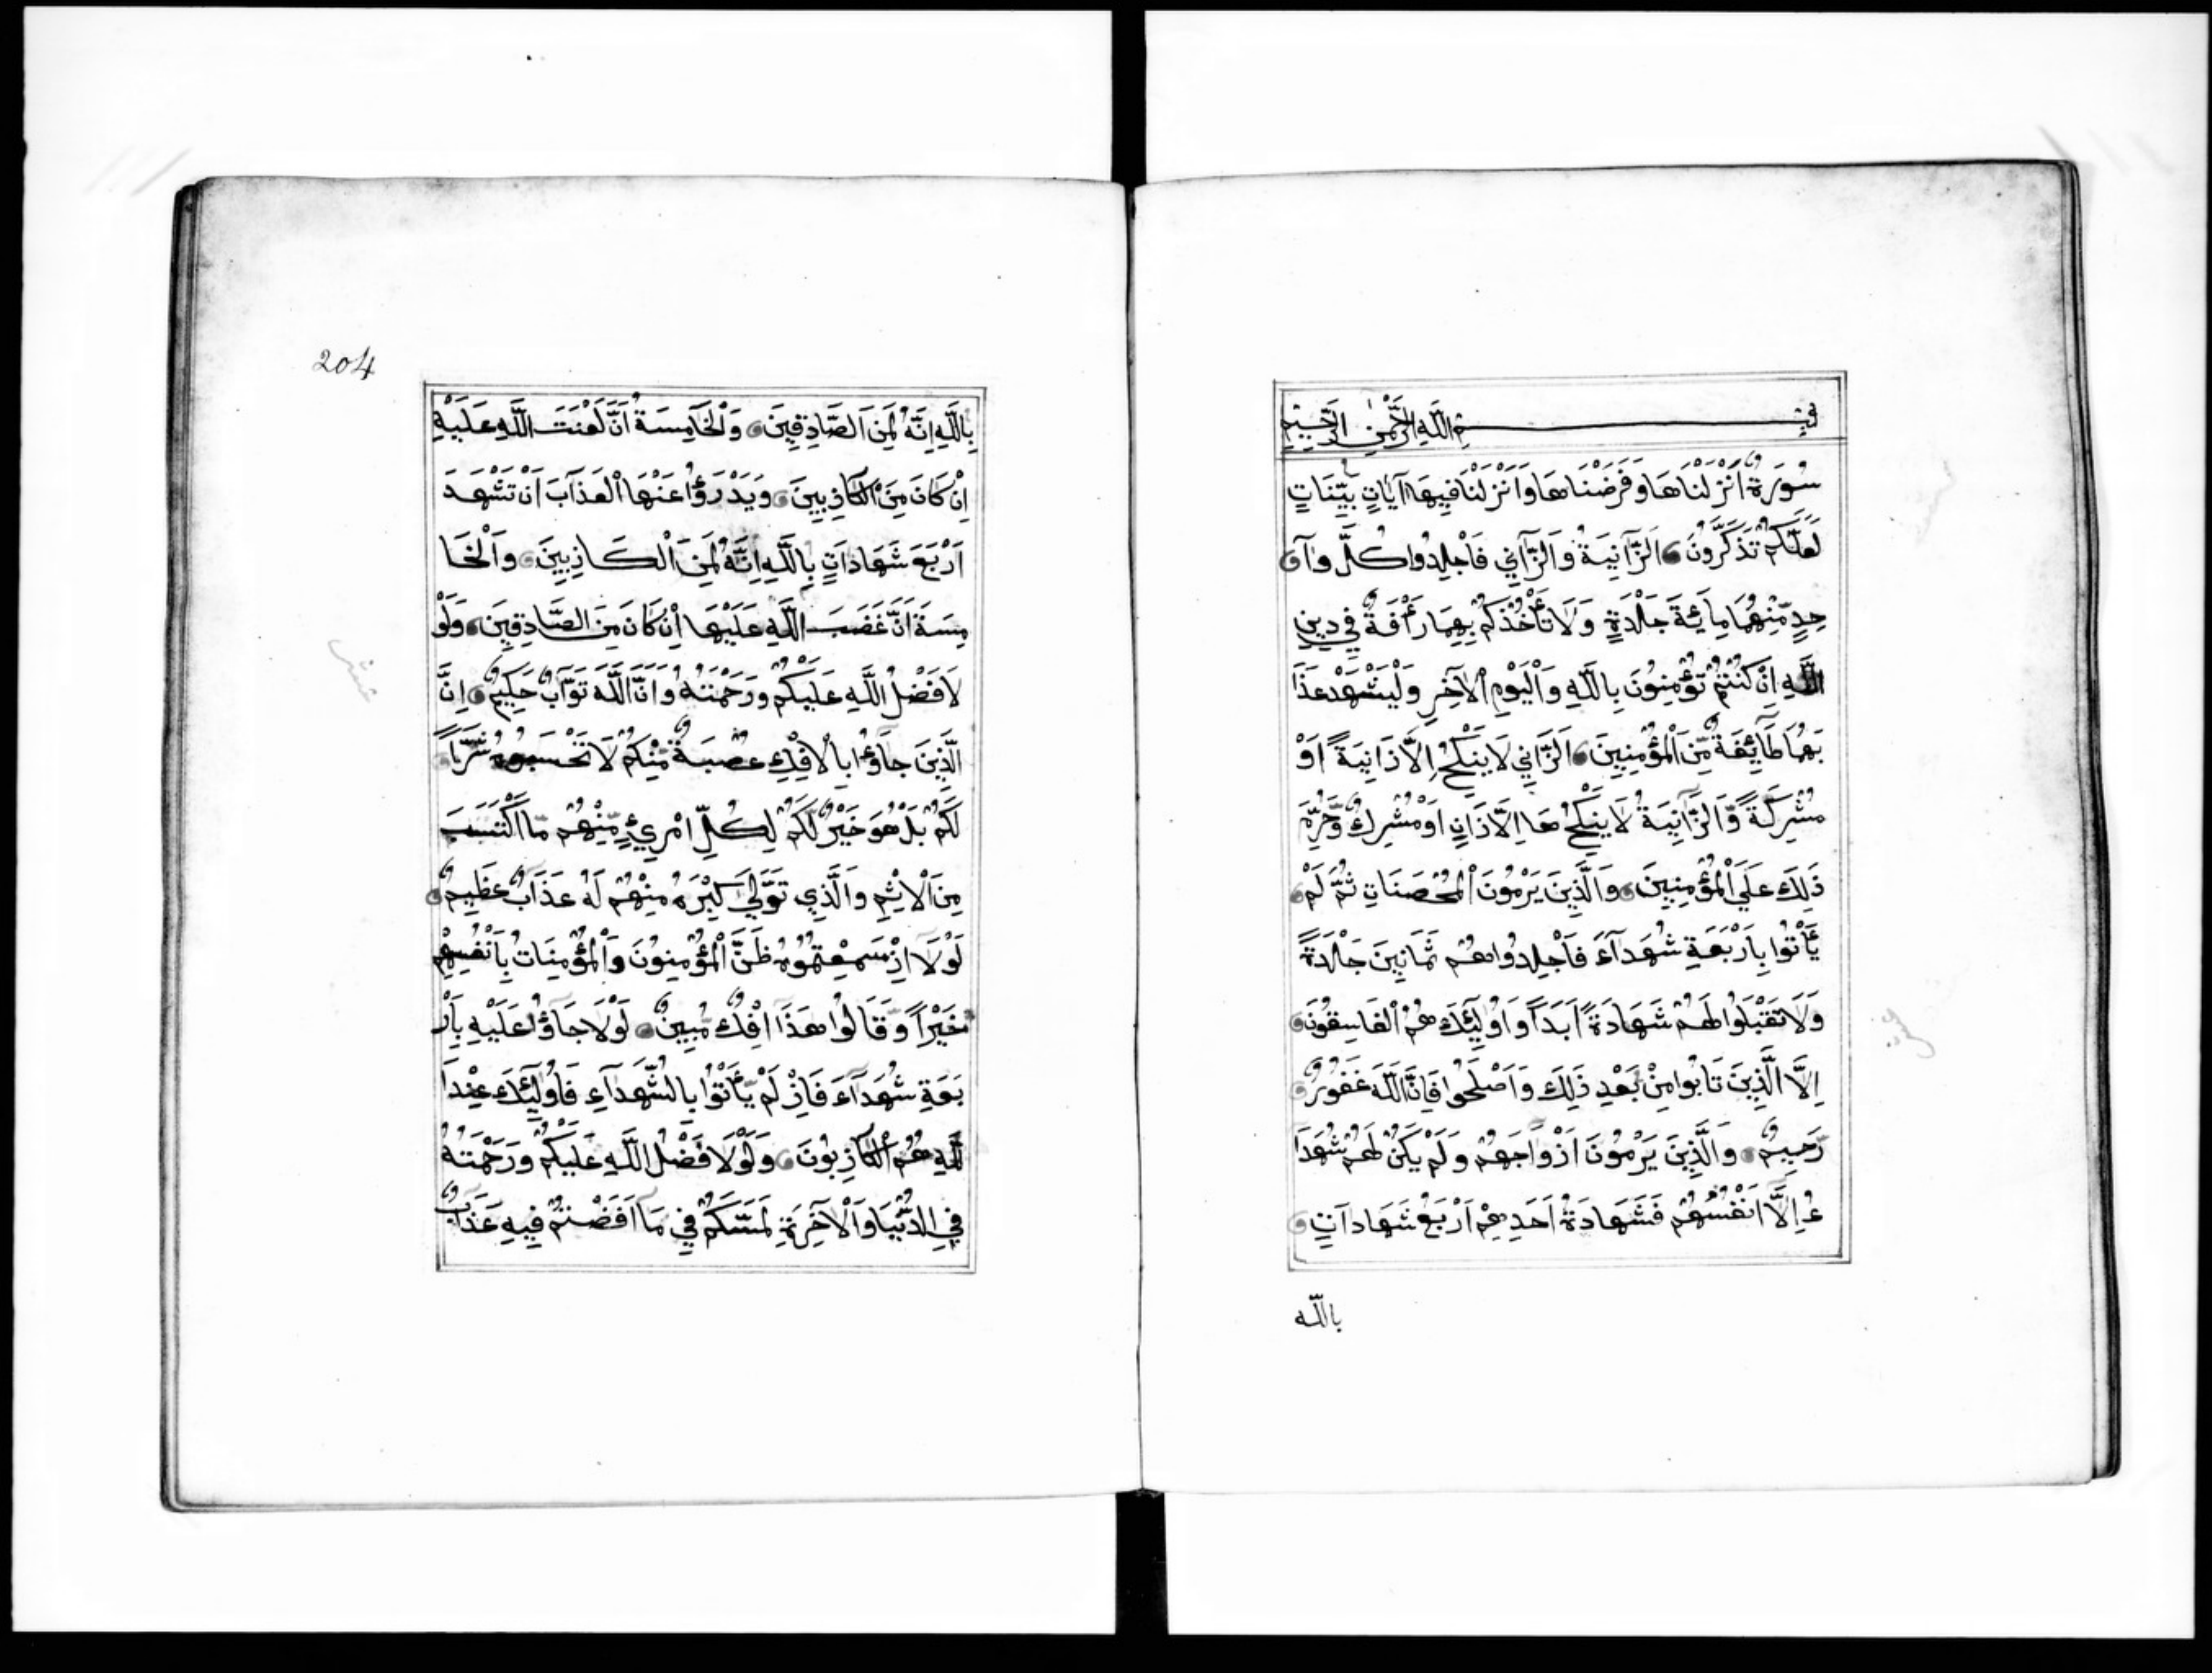 بِسْمِ اللَّهِ الرَّحْمٰنِ الرَّحِيمِ
سُورَةٌ اَنْزَلْنَاهَا وَفَرَضْنَاهَا وَاَنْزَلْنَا فِيهَا آيَاتٍ بَيِّنَاتٍ
لَعَلَّكُمْ تَذَكَّرُونَ اَلزَّانِيَةُ وَالزَّانِي فَاجْلِدُوا كُلَّ وَا
حِدٍ مِّنْهُمَا مِايَئَةَ جَلْدَةٍ وَلَا تَأْخُذْكُمْ بِهِمَا رَأْفَةٌ فِي دِينِ
اللَّهِ اِنْ كُنْتُمْ تُؤْمِنُونَ بِاللَّهِ وَالْيَوْمِ الْآخِرِ وَلْيَشْهَدْ عَذَا
بَهُمَا طَآئِفَةٌ مِّنَ الْمُؤْمِنِينَ اَلزَّانِي لَا يَنْكِحُ اِلَّا زَانِيَةً اَوْ
مُشْرِكَةً وَّالزَّانِيَةُ لَا يَنْكِحُهَا اِلَّا زَانٍ اَوْ مُشْرِكٌ وَّحُرِّمَ
ذَلِكَ عَلَي الْمُؤْمِنِينَ وَالَّذِينَ يَرْمُونَ الْمُحْصَنَاتِ ثُمَّ لَمْ
يَأْتُوا بِاَرْبَعَةِ شُهَدَآءَ فَاجْلِدُوا هُمْ ثَمَانِينَ جَلْدَةً
وَلَا تَقْبَلُوا لَهُمْ شَهَادَةً اَبَدًا وَاُولَئِكَ هُمُ الْفَاسِقُونَ
اِلَّا الَّذِينَ تَابُوا مِنْ بَعْدِ ذَلِكَ وَاَصْلَحُوا فَاِنَّ اللَّهَ غَفُورٌ
رَحِيمٌ وَالَّذِينَ يَرْمُونَ اَزْوَاجَهُمْ وَلَمْ يَكُنْ لَهُمْ شُهَدَا
ءُ اِلَّا اَنْفُسُهُمْ فَشَهَادَةُ اَحَدِهِمْ اَرْبَعُ شَهَادَاتٍ
بالله
204
بِاللَّهِ اِنَّهُ لَمِنَ الصَّادِقِينَ وَالْخَامِسَةُ اَنَّ لَعْنَتَ اللَّهِ عَلَيْهِ
اِنْ كَانَ مِنَ الْكَاذِبِينَ وَيَدْرَؤُا عَنْهَا الْعَذَابَ اَنْ تَشْهَدَ
اَرْبَعَ شَهَادَاتٍ بِاللَّهِ اِنَّهُ لَمِنَ الْكَاذِبِينَ وَالْخَا
مِسَةَ اَنَّ غَضَبَ اللَّهِ عَلَيْهَا اِنْ كَانَ مِنَ الصَّادِقِينَ وَلَوْ
لَا فَضْلُ اللَّهِ عَلَيْكُمْ وَرَحْمَتُهُ وَاَنَّ اللَّهَ تَوَّابٌ حَكِيمٌ اِنَّ
الَّذِينَ جَاؤُا بِالْاِفْكِ عُصْبَةٌ مِّنْكُمْ لَا تَحْسَبُوهُ شَرًّا
لَكُمْ بَلْ هُوَ خَيْرٌ لَّكُمْ لِكُلِّ امْرِيءٍ مِّنْهُمْ مَّا اكْتَسَبَ
مِنَ الْاِثْمِ وَالَّذِي تَوَلَّي كِبْرَهُ مِنْهُمْ لَهُ عَذَابٌ عَظِيمٌ
لَوْلَا اِذْ سَمِعْتُمُوهُ ظَنَّ الْمُؤْمِنُونَ وَالْمُؤْمِنَاتُ بِاَنْفُسِهِمْ
خَيْرًا وَّقَالُوا هَذَا اِفْكٌ مُبِينٌ لَوْلَا جَاؤُا عَلَيْهِ بِاَرْ
بَعَةِ شُهَدَآءَ فَاِذْ لَمْ يَأْتُوا بِالشُّهَدَآءِ فَاُولَئِكَ عِنْدَا
للَّهِ هُمُ الْكَاذِبُونَ وَلَوْلَا فَضْلُ اللَّهِ عَلَيْكُمْ وَرَحْمَتُهُ
فِي الدُّنْيَا وَالْآخِرَةِ لَمَسَّكُمْ فِي مَا اَفَضْتُمْ فِيهِ عَذَابٌ